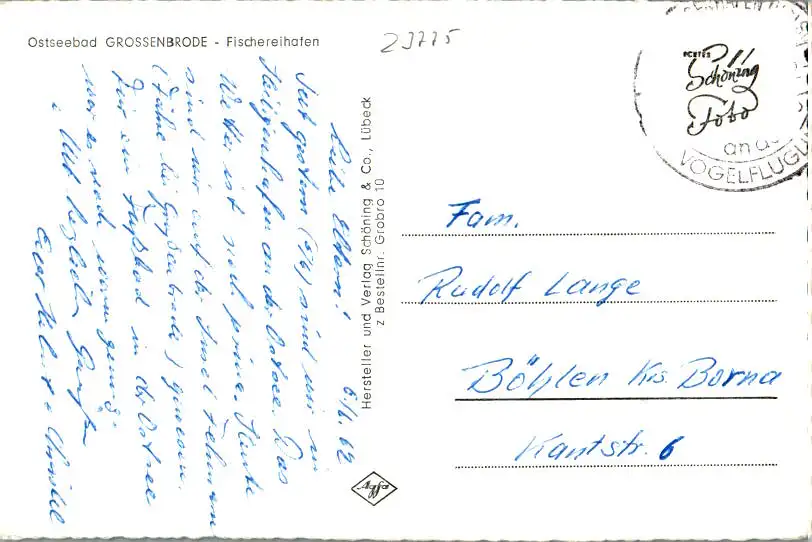 Ostseebad GROSSENBRODE - Fischereihafen
23775
ECHTES
Schöning
Foto
an der
VOGELFLUGL
Liebe Eltern! 6./6. 62
Seit gestern (5/6) sind wir in
Heiligenhafen an der Ostsee. Das
Wetter ist noch prima. Heute
sind wir auf der Insel Fehmarn
(Fähre bis Großenbrode) gewesen.
Für ein Fußbad in der Ostsee
war es noch warm genug.
Mit herzlichen Grüßen
Eure
Hersteller und Verlag Schöning & Co., Lübeck
z Bestellnr. Grobro 10
Agfa
Fam.
Rudolf Lange
Böhlen Krs. Borna
Kantstr. 6